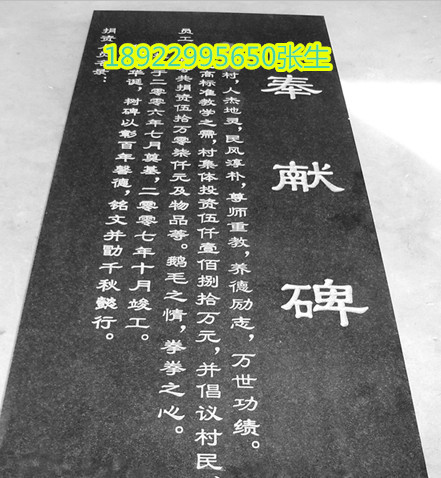 18922995650张生
奉献碑
村，人杰地灵，民风淳朴，尊师重教，养德励志，万世功绩。
高标准教学之需，村集体投资伍仟壹佰捌拾万元，并倡议村民、
员工共捐资伍拾万零柒仟元及物品等。鹅毛之情，拳拳之心。
于二零零六年七月奠基，二零零七年十月竣工。
华诞，树碑以彰百年馨德，铭文并勖千秋懿行。
捐资名录：